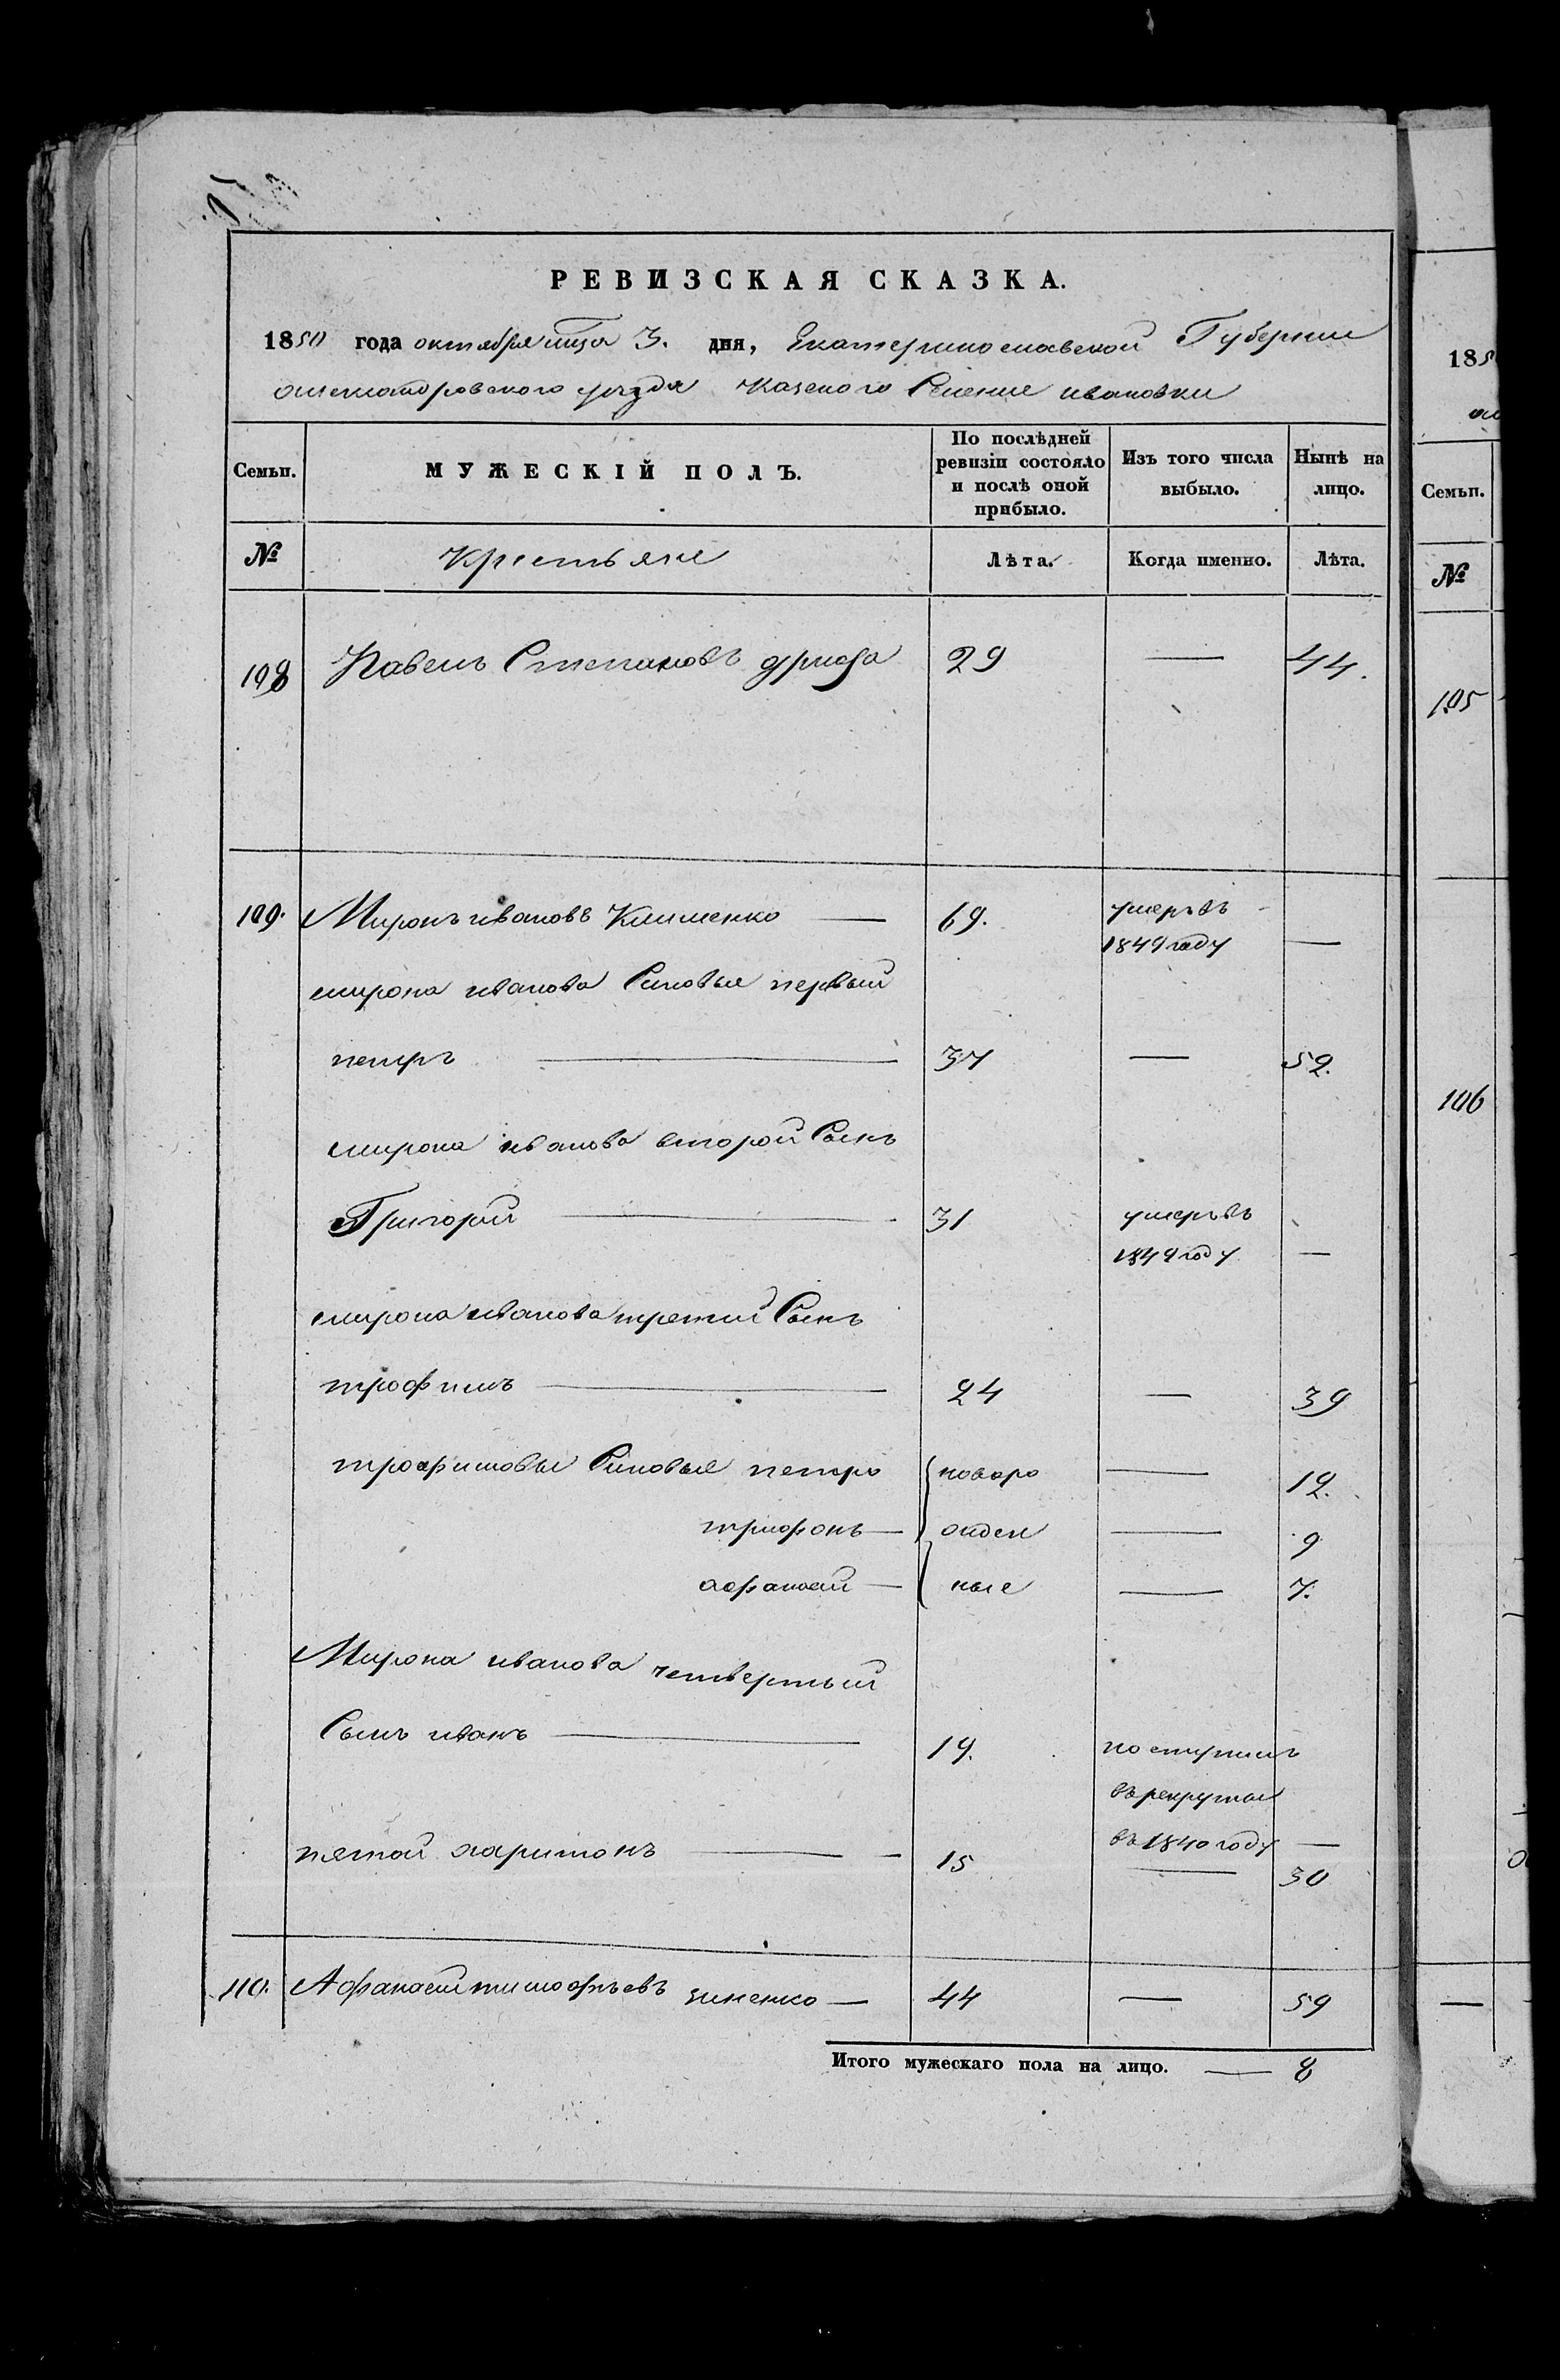 РЕВИЗСКАЯ СКАЗКА.
1850 года октября мца 3. дня, Екатеринославской Губернии
александровского уезда Казеного Селение ивановки
Семьи. МУЖЕСКІЙ ПОЛЪ. По послѣдней ревизіи состояло и послѣ оной прибыло. Изъ того числа выбыло. Нынѣ на лицо.
№ Крестьяне Лѣта. Когда именно. Лѣта.
108 Павелъ Степановъ 29 — 44.
109. Миронъ ивановъ Клименко — 69. умеръ въ
1849 году —
мирона иванова Синовья первый
петръ — 37 — 52.
мирона иванова второй Сынъ
Григорий — 31 умеръ въ
1849 году —
мирона иванова третий Сынъ
трофимъ — 24 — 39
трофимовы Синовья петро новоро — 12.
трифонъ — жден — 9
афанасий — ные — 7.
Мирона иванова четвертый
Сынъ иванъ — 19. поступилъ
въ рекруты
въ 1840 году —
пятой харитонъ — 15 — 30
110. Афанасий тимофѣевъ зиненко — 44 — 59
Итого мужескаго пола на лицо. — 8
185
Семьи.
№
105
106